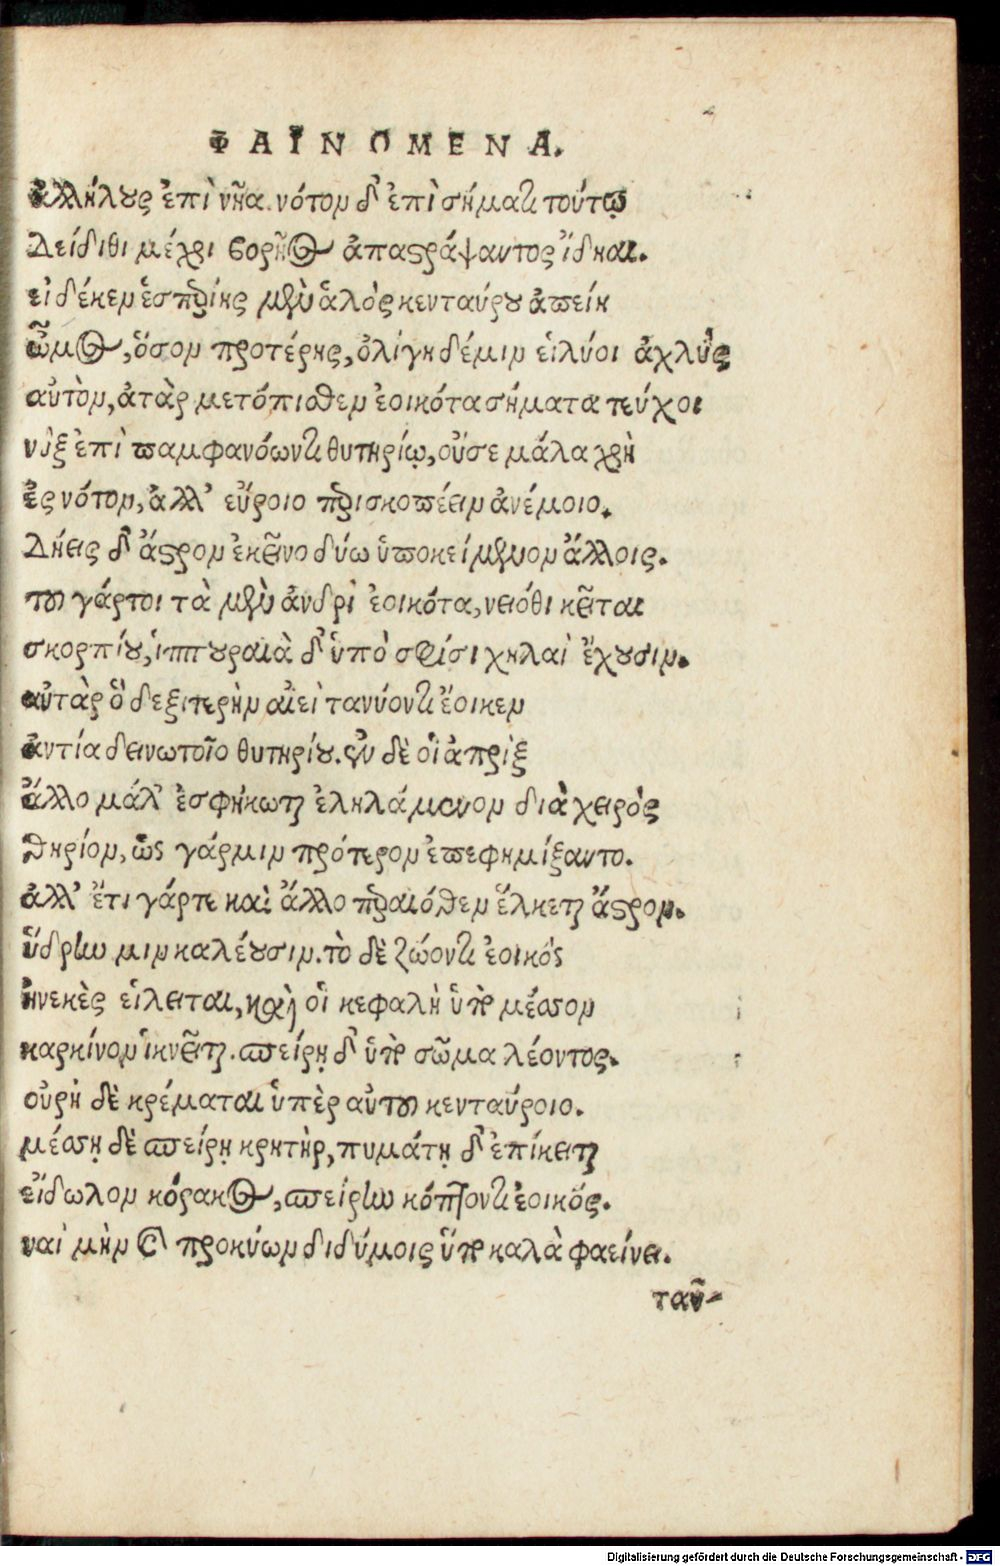 ΦΑΙΝΟΜΕΝΑ.
ἀλλήλους ἐπὶ νῆα. νότον δ' ἐπὶ σήματι τούτῳ
Δείδιθι μέχρι βορῆος ἀπαστράψαντος ἴδηαι.
εἰ δέ κεν ἑσπερίης μὲν ἁλὸς κενταύρου ἀπείη
ὦμος, ὅσον προτέρης, ὀλίγη δέ μιν εἰλύοι ἀχλὺς
αὐτὸν, ἀτὰρ μετόπισθεν ἐοικότα σήματα τεύχοι
νὺξ ἐπὶ παμφανόωντι θυτηρίῳ, οὔ σε μάλα χρὴ
ἐς νότον, ἀλλ' εὔροιο περισκοπέειν ἀνέμοιο.
Δήεις δ' ἄστρον ἐκεῖνο δύω ὑποκείμενον ἄλλοις.
τοῦ γάρ τοι τὰ μὲν ἀνδρὶ ἐοικότα, νειόθι κεῖται
σκορπίου, ἱππουραιὰ δ' ὑπὸ σφίσι χηλαὶ ἔχουσιν.
αὐτὰρ ὃ δεξιτερὴν αἰεὶ τανύοντι ἔοικεν
ἀντία δεινωτοῖο θυτηρίου. ἐν δὲ οἱ ἀπρὶξ
ἄλλο μάλ' ἐσφήκωται ἐληλάμενον διὰ χειρὸς
θηρίον, ὣς γάρ μιν πρότερον ἐπεφημίξαντο.
ἀλλ' ἔτι γάρ τε καὶ ἄλλο περαιόθεν ἕλκεται ἄστρον.
ὕδρην μιν καλέουσιν. τὸ δὲ ζώοντι ἐοικὸς
ἠνεκὲς εἰλεῖται, καὶ ἡ οἱ κεφαλὴ ὑπὸ μέσσον
καρκίνον ἱκνεῖται. σπείρη δ' ὑπὸ σῶμα λέοντος.
οὐρὴ δὲ κρέμαται ὑπὲρ αὐτοῦ κενταύροιο.
μέσσῃ δὲ σπείρῃ κρητὴρ, πυμάτῃ δ' ἐπίκειται
εἴδωλον κόρακος, σπείρην κόπτοντι ἐοικὸς.
ναὶ μὴν καὶ προκύων διδύμοις ὕπο καλὰ φαείνει.
ταῦ-
Digitalisierung gefördert durch die Deutsche Forschungsgemeinschaft - DFG